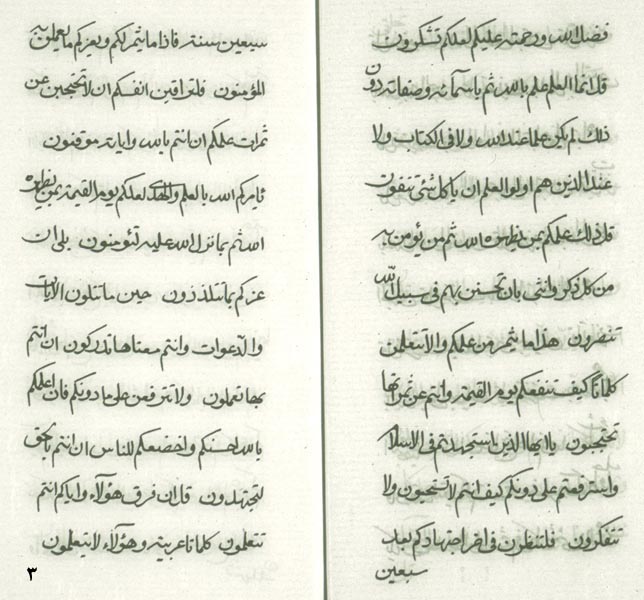 فضل الله ورحمته عليكم لعلكم تشكرون
قل انما العلم علم بالله ثم باسمآئه وصفاته ودون
ذلك لم يكن علما عند الله ولا في الكتاب ولا
عند الذين هم اولوا العلم ان يا كل شئ تتقون
قل ذلك علمكم بمن يظهره الله ثم من يؤمن به
من كل ذكر وانثى بان تحسنن بهم في سبيل الله
تنصرون هذا ما يثمر من علمكم والا تتعلمن
كلماتا كيف تنفعكم يوم القيمة وانتم عن ثمراتها
تحتجبون يا ايها الذين استجهدتم في الاسلام
واسترفعتم على دونكم كيف انتم لا تستحيون ولا
تتفكرون فلتنظرون في اخر اجتهادكم بعد
سبعين
سبعين سنة فاذا ما يثمر لكم ويعزكم ما يعملن به
المؤمنون فلتراقبن انفسكم ان لا تحتجبن عن
ثمرات علمكم ان انتم بالله واياته موقنون
ثامركم الله بالعلم والهدى لعلكم يوم القيمة بمن يظهره
الله ثم بما نزل الله عليه لتؤمنون بلى ان
عزكم بما تتلذذون حين ما تتلون الايات
والدعوات وانتم معناها تدركون ان انتم
بها تعملون ولا تترفعن على ما دونكم فان اعلمكم
بالله احسنكم واخضعكم للناس ان انتم بالحق
لتجتهدون قل ان فرق هؤلآء واياكم انتم
تتعلمون كلماتا عربية وهؤلآء لا يتعلمون
٣